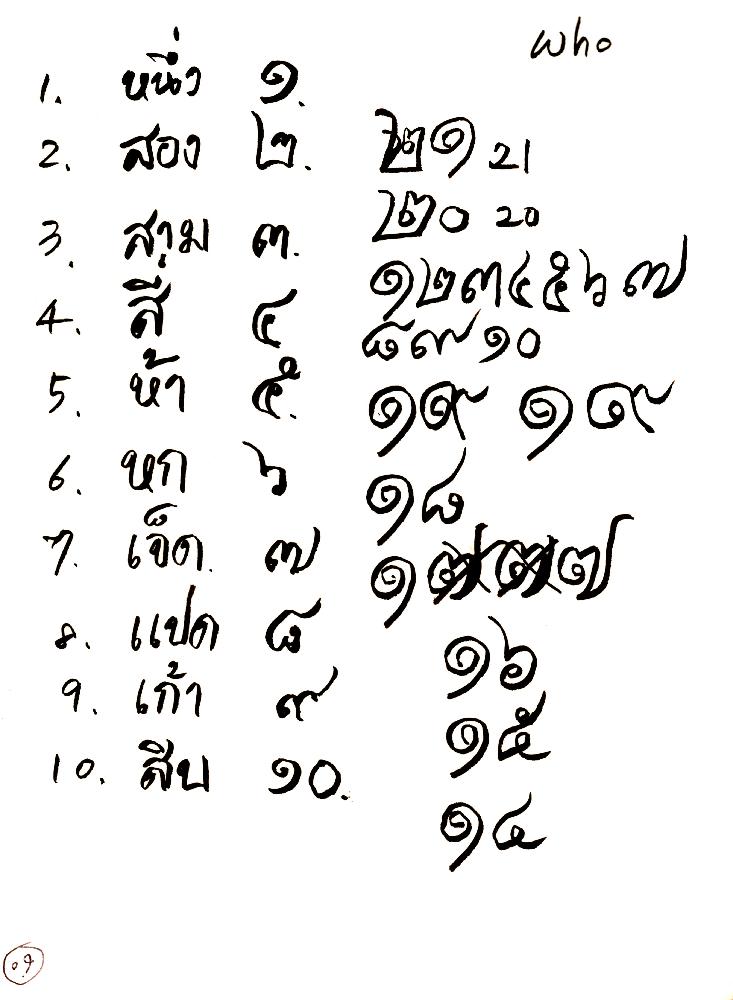 who
1. หนึ่ง ๑.
2. สอง ๒. ๒๑ 21
3. สาม ๓. ๒๐ 20
๑๒๓๔๕๖๗
4. สี่ ๔ ๘๙๑๐
5. ห้า ๕. ๑๙ ๑๙
6. หก ๖ ๑๘
7. เจ็ด. ๗ ๑๗
8. แปด ๘ ๑๖
9. เก้า ๙ ๑๕
10. สิบ ๑๐. ๑๔